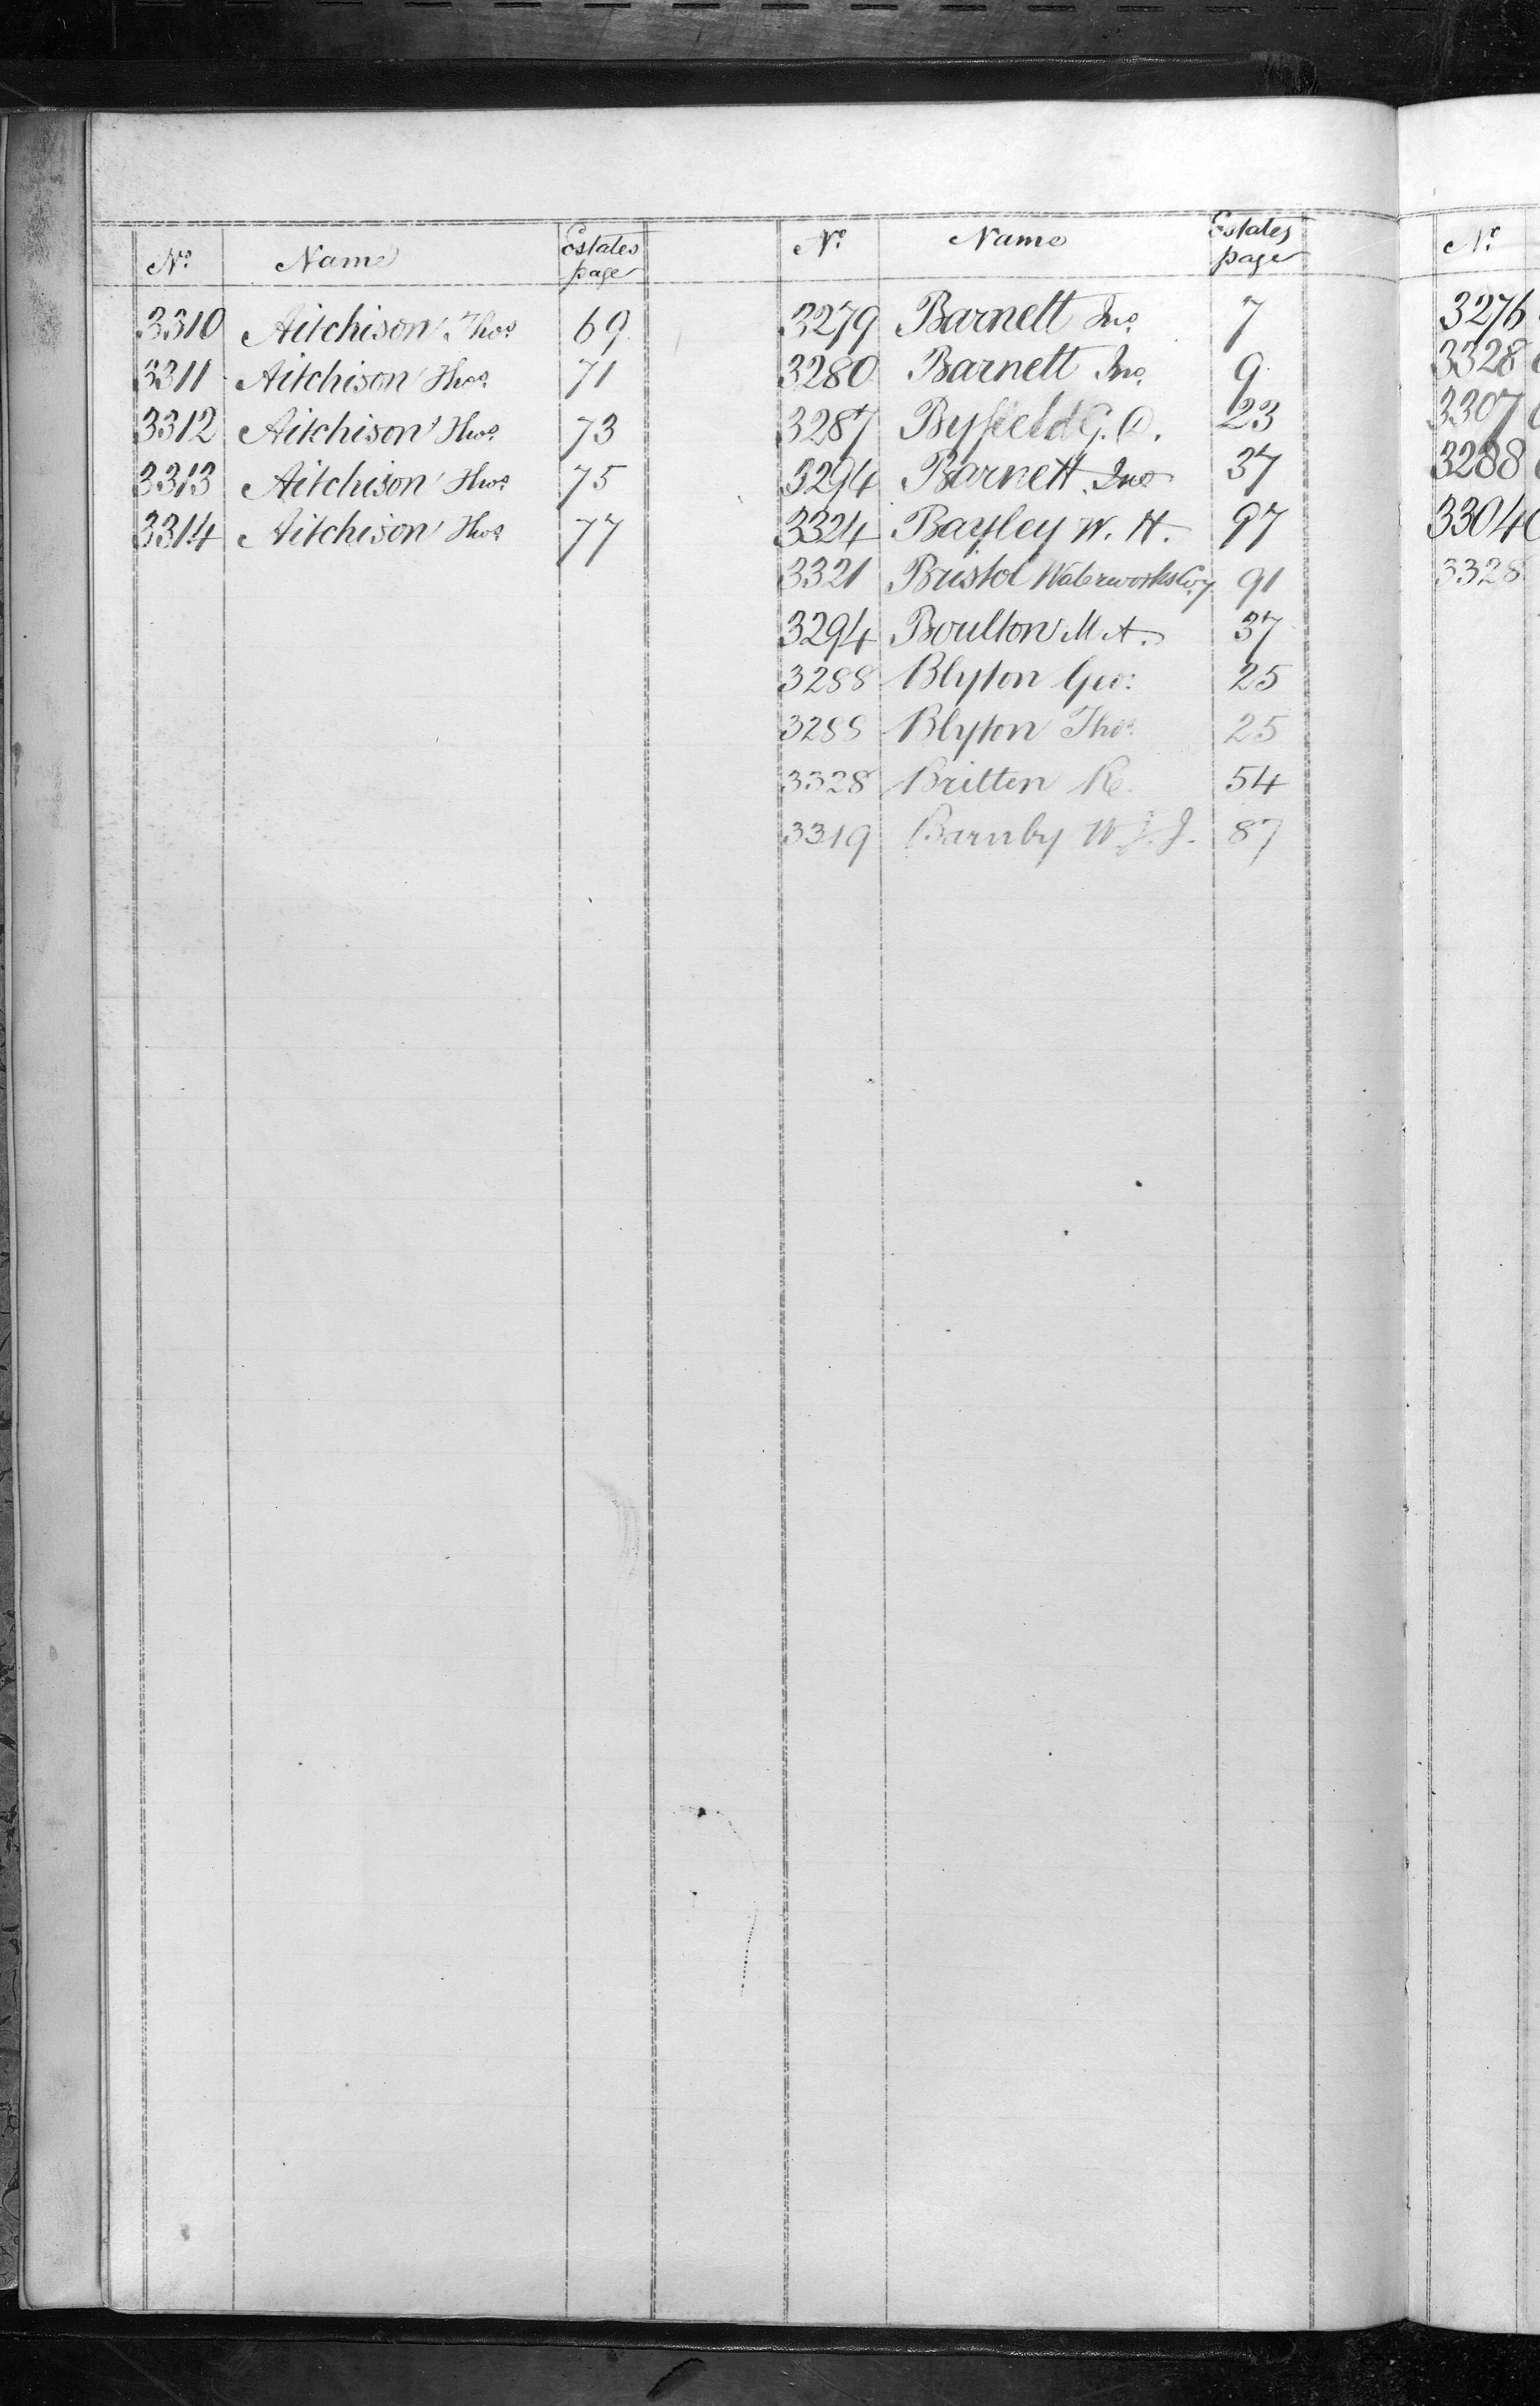 No. Name Estates page
3310 Aitchison Thos. 69
3311 Aitchison Thos. 71
3312 Aitchison Thos. 73
3313 Aitchison Thos. 75
3314 Aitchison Thos. 77
No. Name Estates page
3279 Barnett Jno. 7
3280 Barnett Jno. 9
3287 Byfield G. O. 23
3294 Barnett Jno 37
3324 Bayley W. H. 97
3321 Bristol Waterworks Coy 91
3294 Boulton M A. 37
3288 Blyton Geo: 25
3288 Blyton Thos. 25
3328 Britten R. 54
3319 Barnby W. J. J. 87
No.
3276
3328
3307
3288
3304
3328